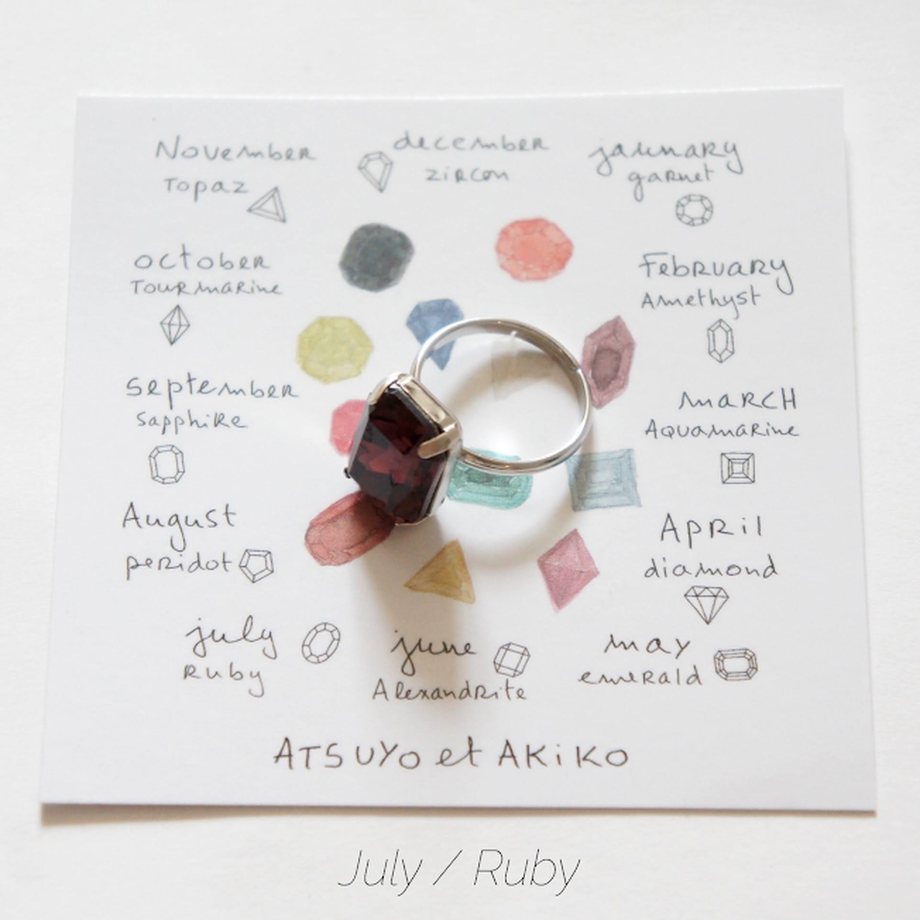 November
Topaz
december
zircon
january
garnet
october
Tourmarine
February
Amethyst
september
Sapphire
MARCH
Aquamarine
August
peridot
April
diamond
july
Ruby
june
Alexandrite
may
emerald
ATSUYO et AKiKO
July / Ruby